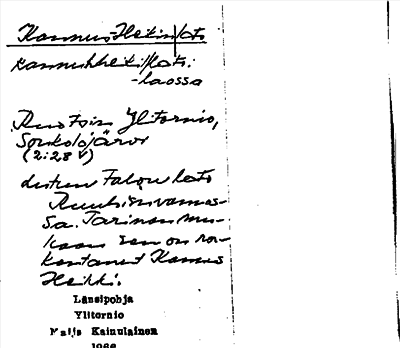 Kannus-Heikin/lato
kannuhheiki/lato:
-laossa
Ruotsin Ylitornio,
Soukolojärvi
(2:28 V)
Talon lato
Ruuhisuvannos-
sa. Tarinan mu-
kaan sen on ra-
kentanut Kannus
Heikki.
Länsipohja
Ylitornio
Maija Kainulainen
1966